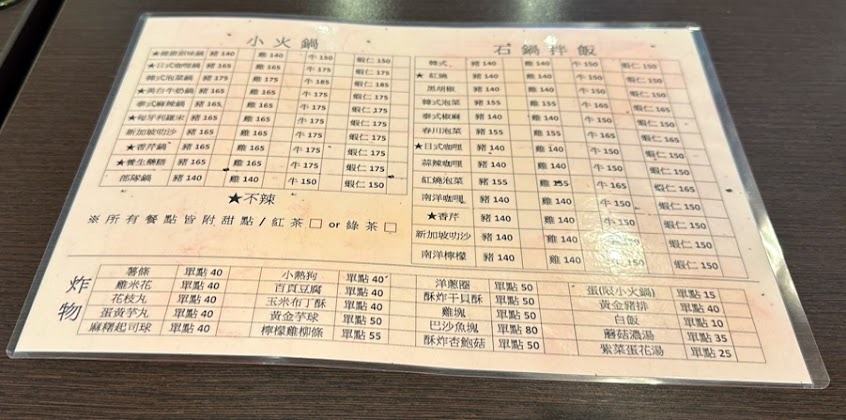 小火鍋
★健康原味鍋 豬 140 雞 140 牛 150 蝦仁 150
★日式咖哩鍋 豬 165 雞 165 牛 175 蝦仁 175
韓式泡菜鍋 豬 175 雞 175 牛 185 蝦仁 185
★美白牛奶鍋 豬 165 雞 165 牛 175 蝦仁 175
泰式麻辣鍋 豬 165 雞 165 牛 175 蝦仁 175
★匈牙利羅宋 豬 165 雞 165 牛 175 蝦仁 175
新加坡叻沙 豬 165 雞 165 牛 175 蝦仁 175
★香芹鍋 豬 165 雞 165 牛 175 蝦仁 175
★養生藥膳 豬 165 雞 165 牛 175 蝦仁 175
部隊鍋 豬 140 雞 140 牛 150 蝦仁 150
★不辣
※所有餐點皆附甜點/紅茶□ or 綠茶□
石鍋拌飯
韓式 豬 140 雞 140 牛 150 蝦仁 150
★紅燒 豬 140 雞 140 牛 150 蝦仁 150
黑胡椒 豬 140 雞 140 牛 150 蝦仁 150
韓式泡菜 豬 155 雞 155 牛 165 蝦仁 165
泰式椒麻 豬 140 雞 140 牛 150 蝦仁 150
春川泡菜 豬 155 雞 155 牛 165 蝦仁 165
★日式咖哩 豬 140 雞 140 牛 150 蝦仁 150
蒜辣咖哩 豬 140 雞 140 牛 150 蝦仁 150
紅燒泡菜 豬 155 雞 155 牛 165 蝦仁 165
南洋咖哩 豬 140 雞 140 牛 150 蝦仁 150
★香芹 豬 140 雞 140 牛 150 蝦仁 150
新加坡叻沙 豬 140 雞 140 牛 150 蝦仁 150
南洋檸檬 豬 140 雞 140 牛 150 蝦仁 150
炸物
薯條 單點 40 小熱狗 單點 40 洋蔥圈 單點 50 蛋(限小火鍋) 單點 15
雞米花 單點 40 百頁豆腐 單點 40 酥炸干貝酥 單點 50 黃金豬排 單點 40
花枝丸 單點 40 玉米布丁酥 單點 40 雞塊 單點 50 白飯 單點 10
蛋黃芋丸 單點 40 黃金芋球 單點 50 巴沙魚塊 單點 80 蘑菇濃湯 單點 35
麻糬起司球 單點 40 檸檬雞柳條 單點 55 酥炸杏鮑菇 單點 50 紫菜蛋花湯 單點 25